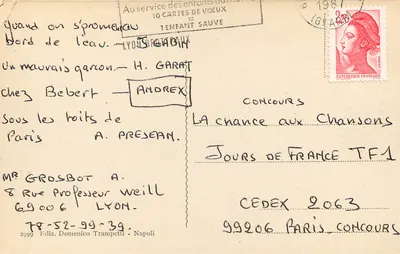 Au service des enfants du monde
10 CARTES DE VOEUX
DE
L'ENFANT SAUVE
1987
2,20
RÉPUBLIQUE FRANÇAISE
quand on s'promène au
bord de l'eau. — J. GABIN
un mauvais garçon — H. GARAT
chez Bebert — ANDREX
sous les toits de
Paris A. PREJEAN.
MR GROSBOT A.
8 Rue Professeur Weill
69006 LYON.
78-52-99-39.
2999 Ediz. Domenico Trampetti - Napoli
CONCOURS
LA chance aux Chansons
JOURS DE FRANCE TF1
CEDEX 2063
99206 PARIS-CONCOURS